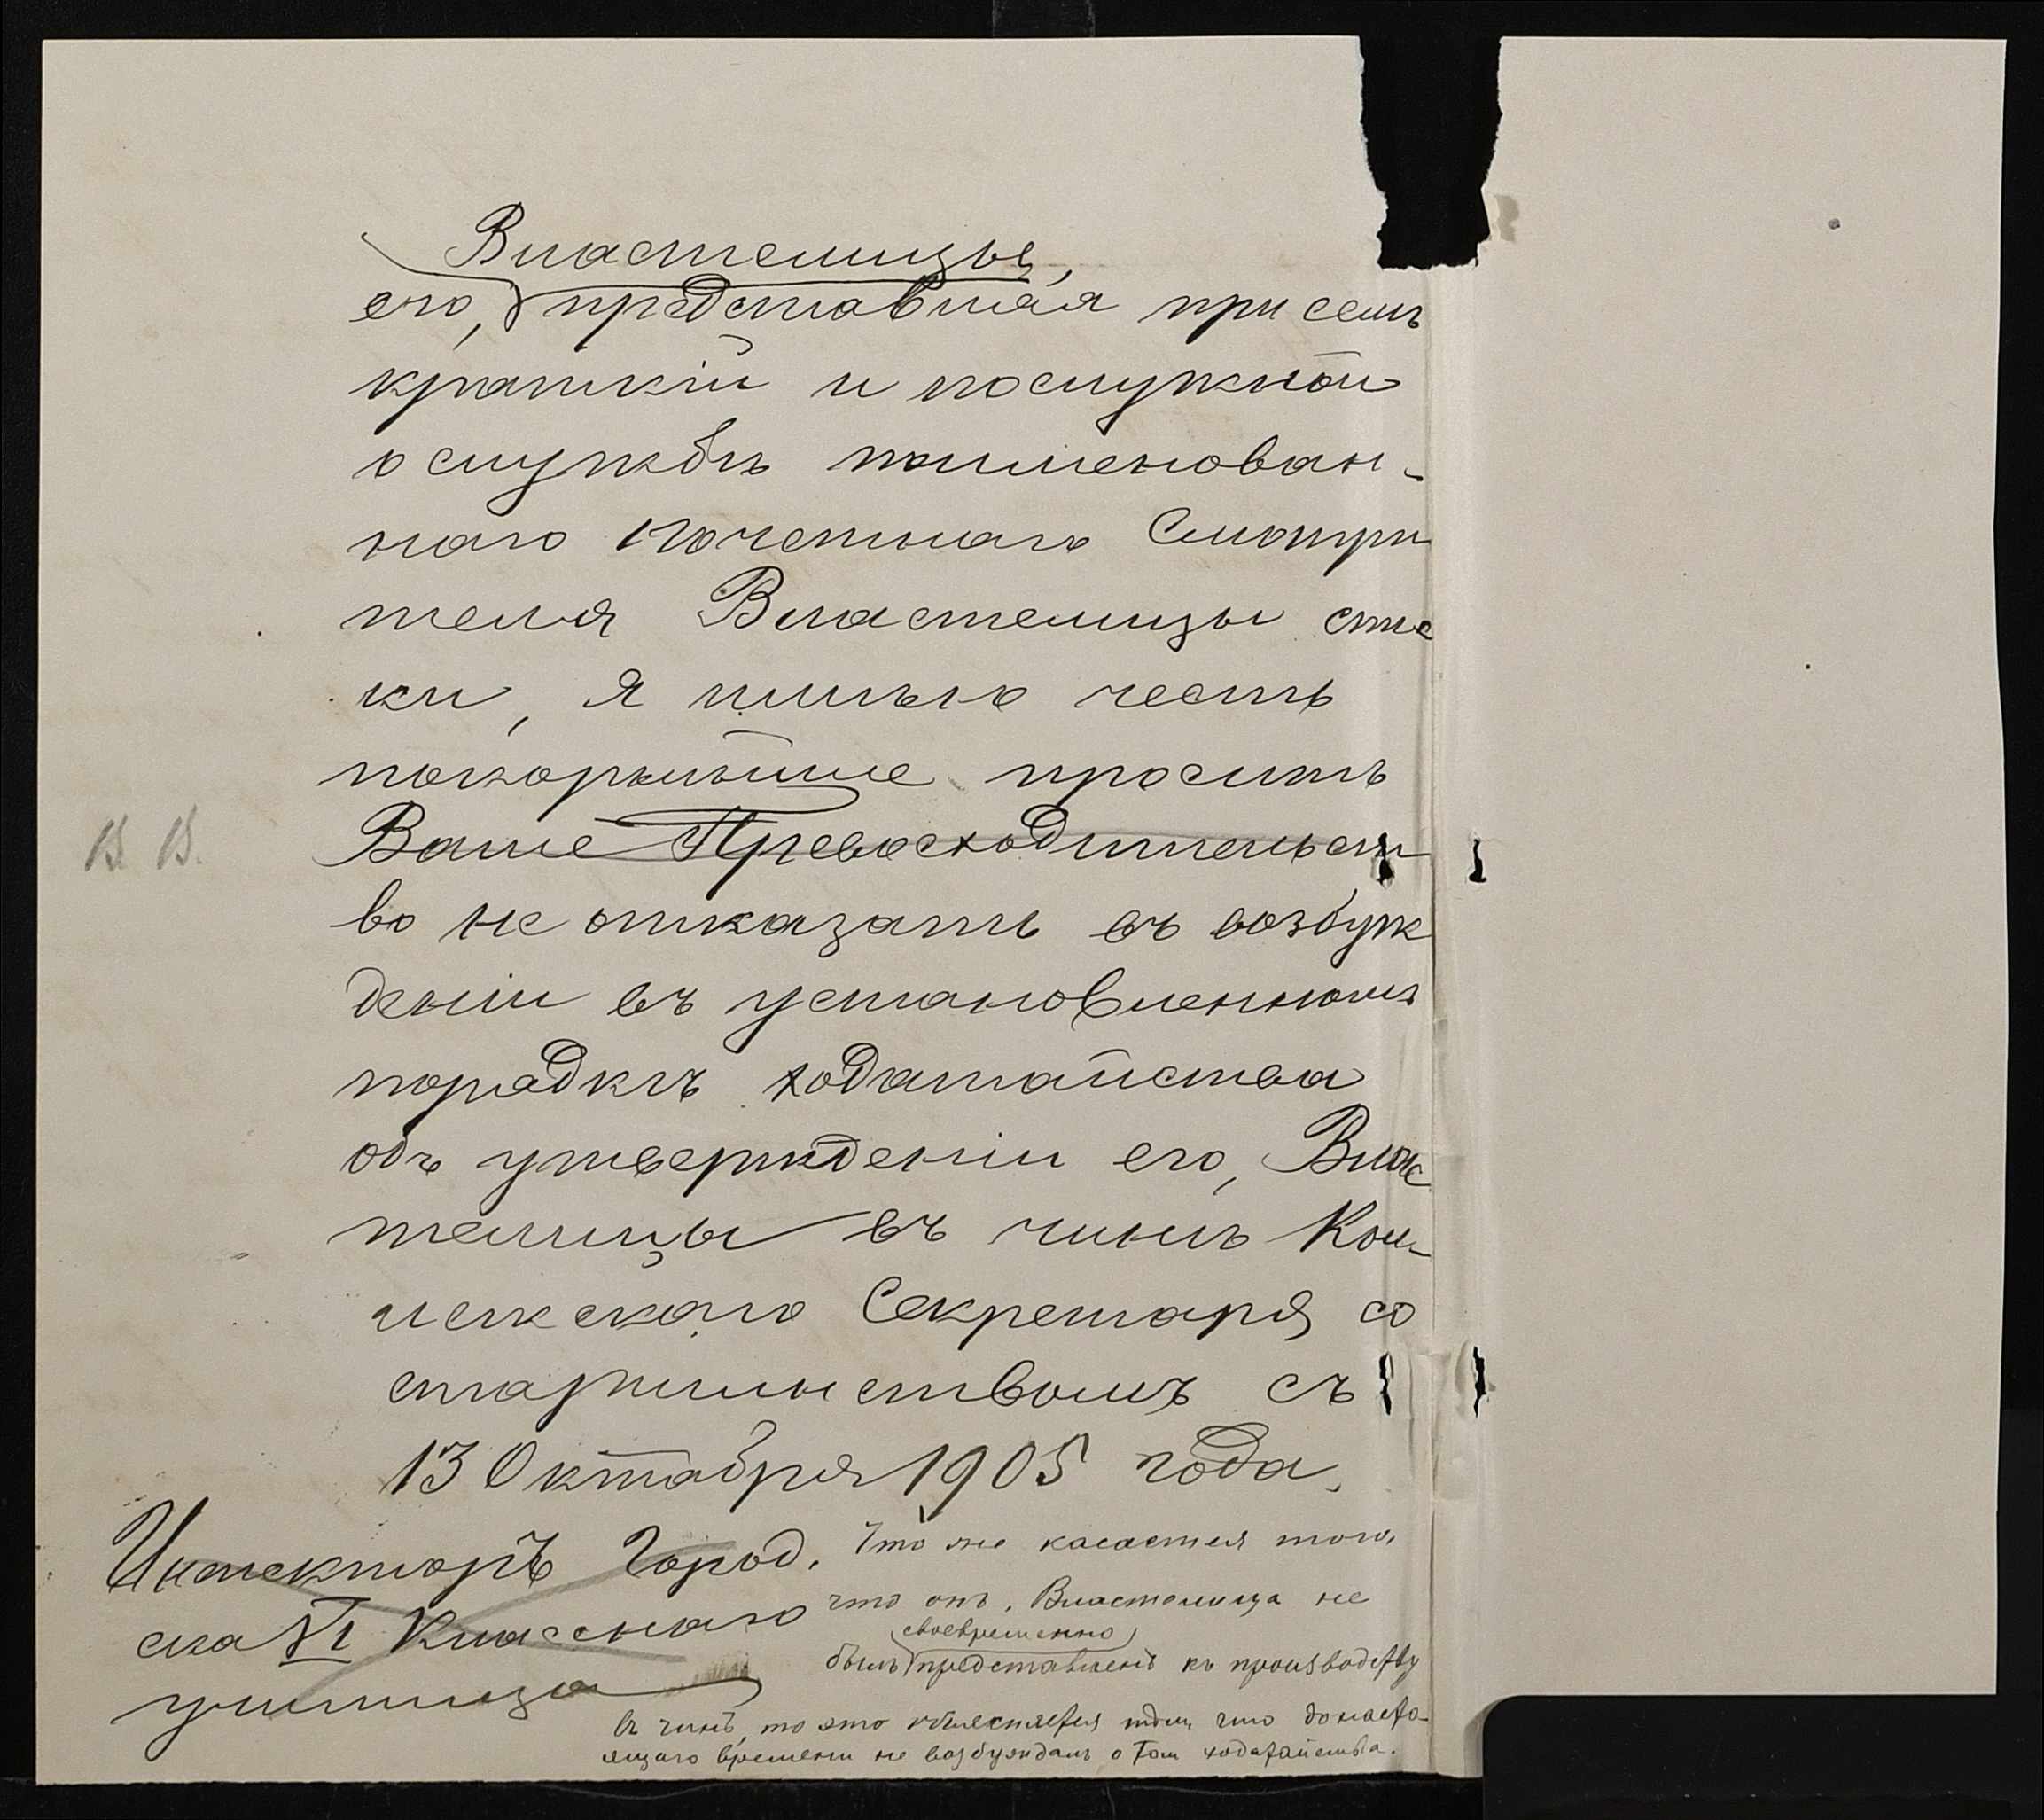 Властелицы,
его, представляя при семъ
краткій и послужной
о службѣ поименован-
наго Почетнаго Смотри
теля Властелицы спис
ки, я имѣю честь
покорнѣйше просить
В. В.
Ваше Превосходительст
во не отказать въ возбуж
деніи въ установленномъ
порядкѣ ходатайства
объ утвержденіи его, Влас
телицы въ чинѣ Кол-
лежскаго Секретаря со
старшинствомъ съ
13 Октября 1905 года.
Инспекторъ Город.
ска VI Класснаго
училища
Что же касается того,
что онъ, Властелица не
своевременно
былъ представленъ къ производству
въ чинѣ, то это объясняется тѣмъ что до наста-
ящаго времени не возбуждалъ о том ходатайства.